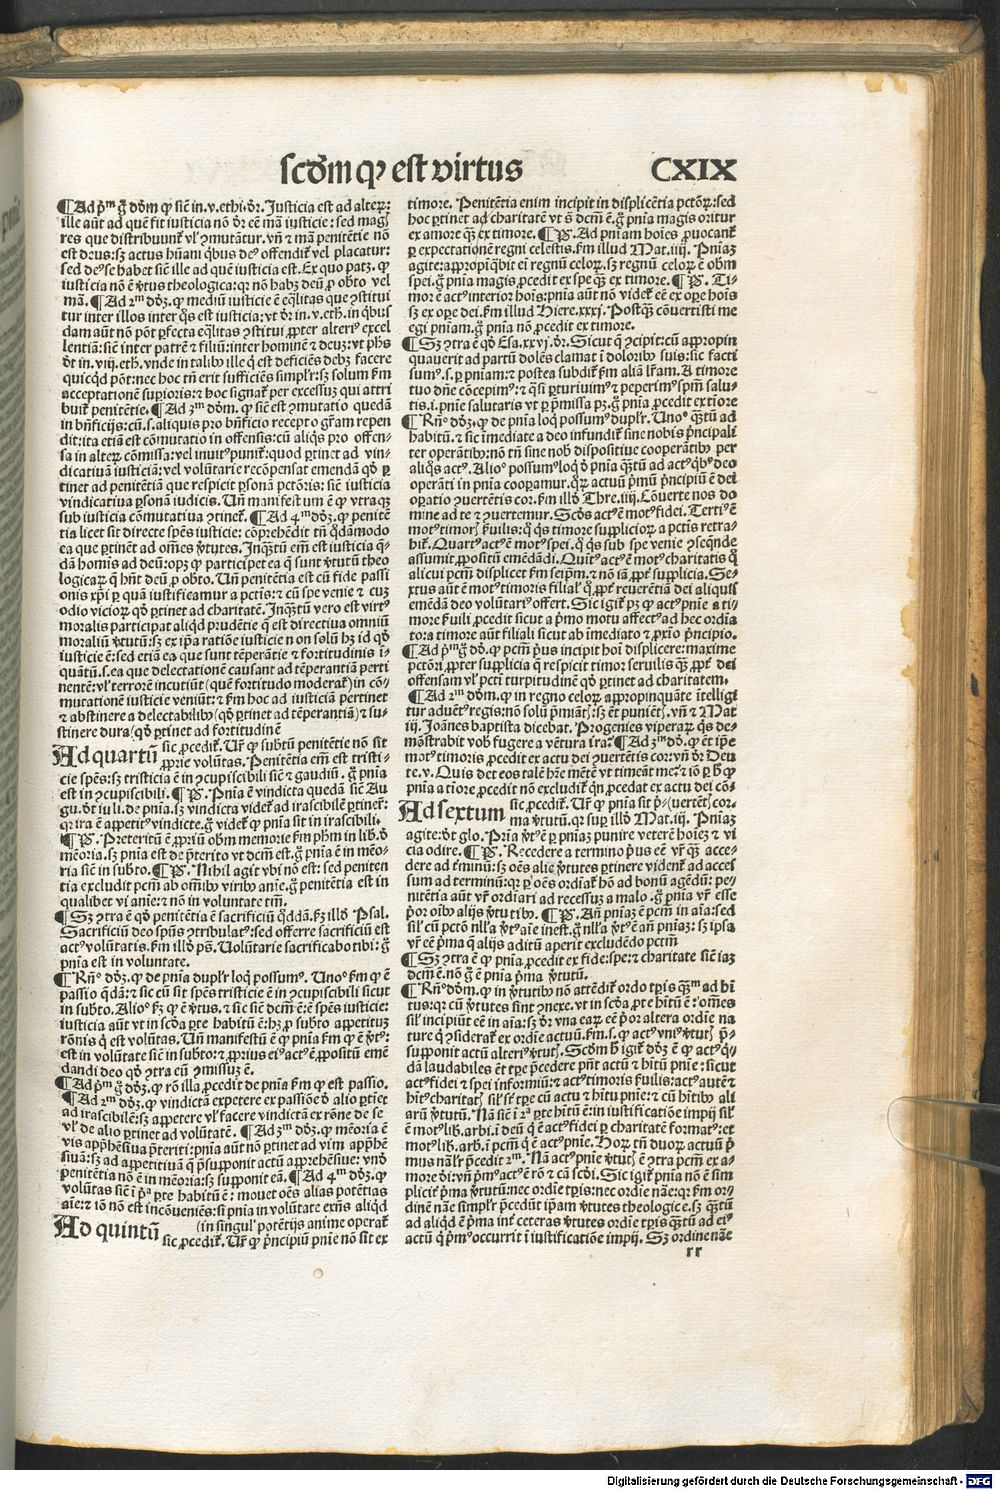 scďm ꝙ est virtus CXIX
¶Ad pᵐ g̃ dōm ꝙ sic̄ in.v.ethi.dr̄. Justicia est ad alteꝝ:
ille aūt ad quē fit iusticia nō dr̄ eē mā iusticie: sed mag̃
res que distribuunt̃ vel ꝯmutātur. vn̄ ⁊ mā penitētie nō
est deus: sꝫ actus hūani q̇bus deꝰ offendit̃ vel placatur:
sed deꝰ se habet sic̄ ille ad quē iusticia est. Ex quo patꝫ. ꝙ
iusticia nō ē v̄tus theologica: qꝛ nō habꝫ deū ꝓ obto vel
mā. ¶Ad 2ᵐ dōꝫ. ꝙ mediū iusticie ē eq̄litas que ꝯstitui
tur inter illos inter q̄s est iusticia: vt dr̄ in.v.eth. in q̇bus
dam aūt nō pōt ꝑfecta eq̄litas ꝯstitui ꝓpter alteriꝰ excel
lentiā: sic̄ inter patrē ⁊ filiū: inter hominē ⁊ deuꝫ: vt ph̄s
dt in.viij.eth. vnde in talibꝰ ille q̇ est deficiēs debꝫ facere
quicq̇d pōt: nec hoc tn̄ erit sufficiēs simpl̃r: sꝫ solum ẜm
acceptationē suꝑioris: ⁊ hoc signat̃ per excessuꝫ qui attri
buit̃ penitētie. ¶Ad 3ᵐ dōm. ꝙ sic̄ est ꝯmutatio quedā
in bn̄ficijs: cū.s.aliquis pro bn̄ficio recepto gr̄am repen
dit: ita etiā est cōmutatio in offensis: cū aliq̇s pro offen-
sa in alteꝝ cōmissa: vel inuitꝰ punit̃: quod ꝑtinet ad vin-
dicatiuā iusticiā: vel volūtarie recōpensat emendā qd̄ ꝑ
tinet ad penitētiā que respicit ꝑsonā pctōris: sic̄ iusticia
vindicatiua ꝑsonā iudicis. Un̄ manifestum ē ꝙ vtraqꝫ
sub iusticia cōmutatiua ꝯtinet̃. ¶Ad 4ᵐ dōꝫ. ꝙ penitē
tia licet sit directe spēs iusticie: cōprehēdit tn̄ q̇dāmodo
ea que ꝑtinēt ad om̄es v̄tutes. Inq̄tū em̄ est iusticia q̄-
dā homis ad deū: oꝫ ꝙ participet ea q̄ sunt v̄tutū theo
logicaꝝ q̄ hn̄t deū ꝓ obto. Un̄ penitētia est cū fide passi
onis xp̄i ꝑ quā iustificamur a pctīs: ⁊ cū spe venie ⁊ cuꝫ
odio vicioꝝ qd̄ ꝑtinet ad charitatē. Inq̄tū vero est virtꝰ
moralis participat aliq̇d prudētie q̄ est directiua omniū
moraliū v̄tutū: sꝫ ex ip̄a ratiōe iusticie nō solū hꝫ id qd̄
iusticie ē: sed etiā ea que sunt tēperātie ⁊ fortitudinis i-
quātū.s.ea que delectationē causant ad tēperantiā perti
nentē: vl̃ terrorē incutiūt (quē fortitudo moderat̃) in cō-
mutationē iusticie veniūt: ⁊ ẜm hoc ad iusticiā pertinet
⁊ abstinere a delectabilibꝰ (qd̄ ꝑtinet ad tēperantiā) ⁊ su-
stinere dura (qd̄ ꝑtinet ad fortitudinē
Ad quartū sic ꝓcedit̃. Ur̃ ꝙ subtū penitētie nō sit
ꝓprie volūtas. Penitētia em̄ est tristi-
cie spēs: sꝫ tristicia ē in ꝯcupiscibili sic̄ ⁊ gaudiū. g̃ pn̄ia
est in ꝯcupiscibili. ¶P̄. Pn̄ia ē vindicta quedā sic̄ Au
gu. dt̄ in li. de pn̄ia. sꝫ vindicta videt̃ ad irascibilē ꝑtinē:
qꝛ ira ē appetitꝰ vindicte. g̃ videt̃ ꝙ pn̄ia sit in irascibili.
¶P̄. Preteritū ē ꝓpriū obm memorie ẜm ph̄m in lib. d̄
mēoria. sꝫ pn̄ia est de p̄terito vt dcm̄ est. g̃ pn̄ia ē in mēo-
ria sic̄ in subto. ¶P̄. Nihil agit vbi nō est: sed peniten
tia excludit pcm̄ ab omībꝰ viribꝰ aīe. g̃ penitētia est in
qualibet vi anīe: ⁊ nō in voluntate tm̄.
¶Sꝫ ꝯtra ē qd̄ penitētia ē sacrificiū q̄ddā. ẜm illd̄ Psal.
Sacrificiū deo spūs ꝯtribulatꝰ: sed offerre sacrificiū est
actꝰ volūtatis. ẜm illd̄ ps̄. Uolūtarie sacrificabo tibi: g̃
pnīa est in voluntate.
¶Rn̄° dōꝫ. ꝙ de pnīa duplr̄ loq̇ possumꝰ. Uno° ẜm ꝙ ē
passio q̄dā: ⁊ sic cū sit spēs tristicie ē in ꝯcupiscibili sicut
in subto. Alio° ẜꝫ ꝙ ē v̄tus. ⁊ sic sic̄ dcm̄ ē: ē spēs iusticie:
iusticia aūt vt in scd̄a ꝑte habitū ē: hꝫ ꝓ subto appetituꝫ
rōnis q̇ est volūtas. Un̄ manifestū ē ꝙ pnīa ẜm ꝙ ē v̄tꝰ:
est in volūtate sic̄ in subto: ⁊ ꝓpriꝰ eiꝰ actꝰ ē ꝓpositū emē
dandi deo qd̄ ꝯtra eū ꝯmissuꝫ ē.
¶Ad pᵐ g̃ dōꝫ. ꝙ rō illa ꝓcedit de pnīa ẜm ꝙ est passio.
¶Ad 2ᵐ dōꝫ. ꝙ vindictā expetere ex passiōe d̄ alio ꝑtiet
ad irascibilē: sꝫ appetere vl̃ facere vindictā ex rōne de se
vl̃ de alio ꝑtinet ad volūtatē. ¶Ad 3ᵐ dōꝫ. ꝙ mēoria ē
vis app̄hēsiua p̄teriti: pnīa aūt nō ꝑtinet ad vim app̄hē
siuā: sꝫ ad appetitiuā q̄ p̄supponit actū appreh̄esiue: vn̄
penitētia nō ē in mēoria: sꝫ supponit eā. ¶Ad 4ᵐ dōꝫ. ꝙ
volūtas sic̄ ī pᵃ ꝑte habitū ē: mouet oēs alias potētias
aīe: ⁊ iō nō est incōueniēs: si pnīa in volūtate exn̄s aliq̇d
(in singulꝭ potētijs anime operat̃
Ad quintū sic ꝓcedit̃. Ur̃ ꝙ prīncipiū pnīe nō sit ex
timore. Penitētia enim incipit in displicētia pctōꝝ: sed
hoc ꝑtinet ad charitatē vt s̄ dcm̄ ē. g̃ pnīa magis oritur
ex amore q̄ꝫ ex timore. ¶P̄. Ad pnīam hoīes ꝓuocant̃
ꝑ expectationē regni celestis. ẜm illud Mat. iiij. Pnīaꝫ
agite: appropīq̇bit ei regnū celoꝝ. sꝫ regnū celoꝝ ē obm
spei. g̃ pnīa magis ꝓcedit ex spe q̄ꝫ ex timore. ¶P̄. Ti-
mor ē actꝰ interior hoīs: pnīa aūt nō videt̃ eē ex oꝑe hoīs
sꝫ ex oꝑe dei. ẜm illud Hiere.xxxj. Postq̄ꝫ cōuertisti me
egi pnīam. g̃ pnīa nō ꝓcedit ex timore.
¶Sꝫ ꝯtra ē qd̄ Esa.xxvj.dr̄. Sicut q̄ ꝯcipit: cū appropin
quauerit ad partū dolēs clamat ī doloribꝰ suis: sic facti
sumꝰ.s.ꝑ pnīam: ⁊ postea subdit̃ ẜm aliā lr̄am. A timore
tuo dn̄e cōcepimꝰ: ⁊ q̄si ꝑturiuimꝰ ⁊ peperimꝰ spm̄ salu-
tis.i.pnīe salutaris vt ꝑ p̄missa pꝫ. g̃ pnīa ꝓcedit ex tiōre
¶Rn̄° dōꝫ. ꝙ de pnīa loq̇ possumꝰ duplr̄. Uno° q̄ꝫtū ad
habitū. ⁊ sic īmediate a deo infundit̃ sine nobis p̄ncipali
ter operātibꝰ: nō tn̄ sine nob̄ dispositiue cooperātibꝰ per
aliq̄s actꝰ. Alio° possumꝰ loq̇ d̄ pnīa q̄ꝫtū ad actꝰ q̇bꝰ deo
operāti in pnīa cooꝑamur. q̄ꝝ actuū p̄mū p̄ncipiū ē dei
oꝑatio ꝯuertētis cor. ẜm illd̄ Thre.iiij. Cōuerte nos do
mine ad te ⁊ ꝯuertemur. Scd̄s actꝰ ē motꝰ fidei. Tertiꝰ ē
motꝰ timorꝭ ẜuilis: q̇ q̇s timore supplicioꝝ a pctīs retra-
hit̃. Quartꝰ actꝰ ē motꝰ spei. q̇ q̇s sub spe venie ꝯseq̄nde
assumit ꝓpositū emēdādi. Quītꝰ actꝰ ē motꝰ charitatis q̇
alicui pcm̄ displicet ẜm seip̄m. ⁊ nō iā ꝓpt̃ supplicia. Se-
xtus aūt ē motꝰ timoris filialꝭ q̇ ꝓpt̃ reuerētiā dei aliquis
emēdā deo volūtariꝰ offert. Sic igit̃ pꝫ ꝙ actꝰ pnīe a ti-
more ẜuili ꝓcedit sicut a p̄mo motu affectꝰ ad hec ordīa
to: a timore aūt filiali sicut ab īmediato ⁊ ꝓxīo p̄ncipio.
¶Ad pᵐ g̃ dō. ꝙ pcm̄ pꝰus incipit hoī displicere: maxime
pctōri. ꝓpter supplicia q̄ respicit timor seruilis q̄ꝫ ꝓpt̃ dei
offensam vl̃ pcti turpitudinē qd̄ ꝑtinet ad charitatem.
¶Ad 2ᵐ dōm. ꝙ in regno celoꝝ appropinquāte ītelligi
tur aduētꝰ regis: nō solū p̄miātꝭ: sꝫ ēt puniētꝭ. vn̄ ⁊ Mat
iij. Joānes baptista dicebat. Progenies viperaꝝ q̇s de-
mōstrabit vob̄ fugere a vētura ira? ¶Ad 3ᵐ dō. ꝙ ēt ip̄e
motꝰ timoris ꝓcedit ex actu dei ꝯuertētis cor: vn̄ dr̄ Deu
te.v. Quis det eos talē hr̄e mētē vt timeāt me? ⁊ iō ꝑ h̄ ꝙ
pnīa a tīore ꝓcedit nō excludit̃ qn̄ ꝓcedat ex actu dei cō-
Ad sextum sic ꝓcedit̃. Ur̃ ꝙ pnīa sit p̄- (uertētꝭ cor.
ma v̄tutū. qꝛ sup illd̄ Mat.iij. Pnīaꝫ
agite: dt̄ glo. Prīa v̄tꝰ ē ꝑ pnīaꝫ punire veterē hoīeꝫ ⁊ vi
cia odire. ¶P̄. Recedere a termino pꝰus eē vr̃ q̄ꝫ acce-
dere ad ẜminū: sꝫ oēs alie v̄tutes ꝑtinere vident̃ ad acces
sum ad terminū: qꝛ ꝑ oēs ordīat̃ hō ad bonū agēdū: pe-
nitētia aūt vr̃ ordiari ad recessuꝫ a malo. g̃ pnīa vr̃ esse
p̄or oībꝰ alijs v̄tutibꝰ. ¶P̄. An̄ pnīaꝫ ē pcm̄ in aīa: sed
sil̃ cū pctō nll̄a v̄tꝰ aīe inest. g̃ nll̄a v̄tꝰ ē an̄ pnīaꝫ: sꝫ ipsa
vr̃ eē p̄ma q̄ alijs aditū aperit excludēdo pctm̄
¶Sꝫ ꝯtra ē ꝙ pnīa ꝓcedit ex fide: spe: ⁊ charitate sic̄ iaꝫ
dcm̄ ē. nō g̃ ē pnīa p̄ma v̄tutū.
¶Rn̄° dōm. ꝙ in v̄tutibꝰ nō attēdit̃ ordo tp̄is q̄ꝫᵐ ad hī
tus: qꝛ cū v̄tutes sint ꝯnexe. vt in scd̄a ꝑte hītū ē: om̄es
sil̃ incipiūt eē in aīa: sꝫ dr̄ vna eaꝝ eē p̄or altera ordīe na
ture q̇ ꝯsiderat̃ ex ordīe actuū. ẜm.s.ꝙ actꝰ vniꝰ v̄tutꝭ p̄-
supponit actū alteriꝰ v̄tutꝭ. Scd̄m h̄ igit̃ dōꝫ ē ꝙ actꝰ q̇-
dā laudabiles ēt tp̄e p̄cedere pn̄t actū ⁊ hītū pnīe: sicut
actꝰ fidei ⁊ spei informiū: ⁊ actꝰ timoris ẜuilis: actꝰ autē ⁊
hītꝰ charitatꝭ sil̃ sr̄ tp̄e cū actu ⁊ hītu pnīe: ⁊ cū hītibꝰ ali
arū v̄tutū. Nā sic̄ ī 2ᵃ ꝑte hītū ē: in iustificatiōe impij sil̃
ē motꝰ lib. arbi. ī deū q̇ ē actꝰ fidei ꝑ charitatē formatꝰ: et
motꝰ lib. arb. ī pcm̄ q̇ ē actꝰ pnīe. Hoꝝ tn̄ duoꝝ actuū p̄
mus nālr̄ p̄cedit 2ᵐ. Nā actꝰ pnīe v̄tutꝭ ē ꝯtra pcm̄ ex a-
more dī: vn̄ pꝰmꝰ actꝰ ē rō ⁊ cā scd̄i. Sic igit̃ pnīa nō ē sim
plicit̃ pꝰma v̄tutū: nec ordīe tp̄is: nec ordīe nāe: qꝛ ẜm or-
dinē nāe simplr̄ p̄cedūt ip̄am v̄tutes theologice. sꝫ q̄ꝫtū
ad aliq̇d ē pꝰma int̃ ceteras v̄tutes ordīe tp̄is q̄ꝫtū ad eiꝰ
actū q̇ pꝰmꝰ occurrit ī iustificatiōe impij. Sꝫ ordine nāe
rr
Digitalisierung gefördert durch die Deutsche Forschungsgemeinschaft - DFG